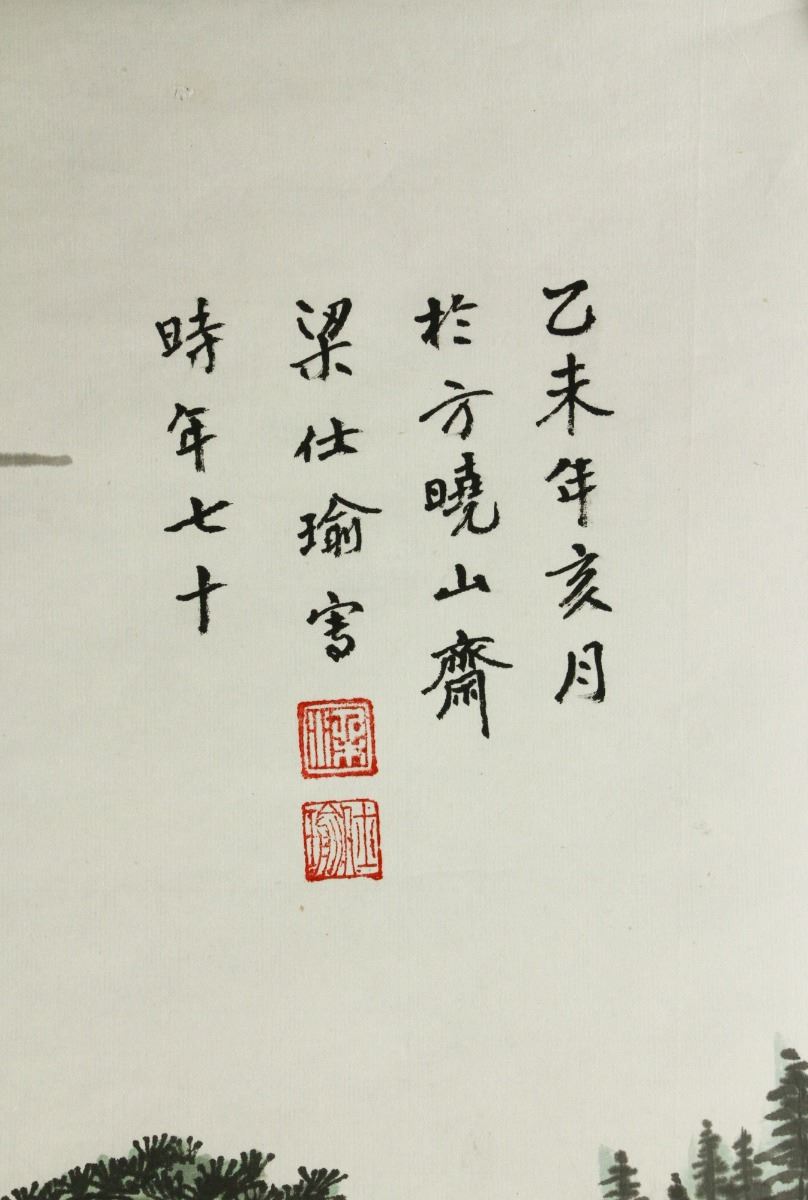 乙未年亥月
於方曉山齋
梁仕瑜寫
時年七十
仕瑜